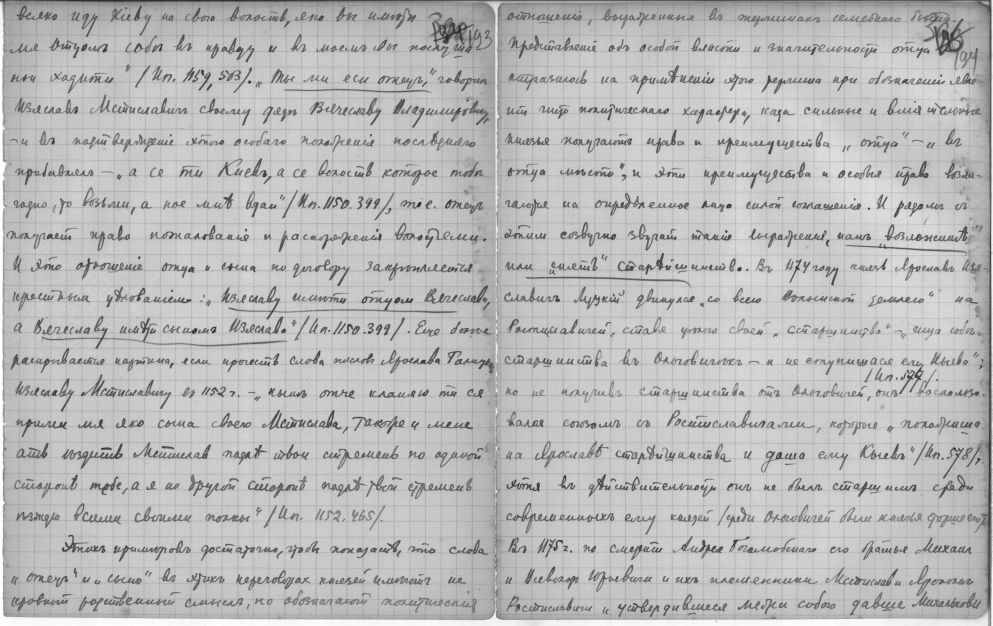 193
всяко иду Кіеву на свою волость, яко вы имѣти
мя отцомъ собѣ въ правду и въ моемъ вы послуша-
ньи ходити" /Ип. 1159, 503/. „Ты ми еси отецъ," говорилъ
Изяславъ Мстиславичъ своему дядѣ Вячеславу Владиміровичу,
– и въ подтвержденіе этого особаго положенія послѣдняго
прибавлялъ – „а се ти Киевъ, а се волость которое тобѣ
годно, то возьми, а иное мнѣ вдаи" /Ип. 1150. 399/, т.е. отецъ
получаетъ право пожалованія и распоряженія волостьями.
И это отношеніе отца и сына по договору закрѣпляется
крестнымъ цѣлованіемъ: „Изяславу имѣти отцомъ Вячеслава,
а Вячеславу имѣти сыномъ Изяслава" /Ип. 1150. 399/. Еще болѣе
раскрывается картина, если прочесть слова пословъ Ярослава Галицк.
Изяславу Мстиславичу въ 1152 г. – „нынѣ отче кланяю ти ся
прими мя яко сына своего Мстислава, такоже и мене
ать ѣздить Мстиславъ подлѣ твои стремень по одиной
сторонѣ тобе, а я по другой сторонѣ подлѣ твой стремень
ѣзждю всими своими полкы" /Ип. 1152. 465/.
Этихъ примѣровъ достаточно, чтобы показать, что слова
„отецъ" и „сынъ" въ этихъ переговорахъ князей имѣютъ не
кровный родственный смыслъ, но обозначаютъ политическія
194
отношенія, выраженныя въ терминахъ семейного быта.
Представленіе объ особой власти и значительности отца
отразилось на примѣненіи этого термина при обозначеніи явле-
ній чисто политическаго характера, когда сильные и вліятельные
князья получаютъ права и преимущества „отца" – „въ
отца мѣсто", и эти преимущества и особыя права возла-
гаются на опредѣленное лицо силой соглашенія. И рядомъ съ
этимъ созвучно звучатъ такія выраженія, какъ „возложить"
или „снять" старѣйшинство. В 1174 году князь Ярославъ Изя-
славичъ Луцкій двинулся „со всею Волынской землею" на
Ростиславичей, ставя цѣлью свое „старшинство" – „ища собѣ
старшинства въ Ольговичохъ – и не ступишася ему Кыева";
/Ип. 577/
но не получивъ старшинства отъ Ольговичей, онъ воспользо-
вался союзомъ съ Ростиславичами, которые „положиша
на Ярославѣ старѣйшинства и даша ему Кыевъ" /Ип. 578/,
хотя въ дѣйствительности онъ не былъ старшимъ среди
современныхъ ему князей /среди Ольговичей были князья старше его/.
Въ 1175 г. по смерти Андрея Боголюбскаго его братья Михаил
и Всеволодъ Юрьевичи и ихъ племенники Мстислав и Ярополкъ
Ростиславичи „утвердившеся межи собою давше Михалькови